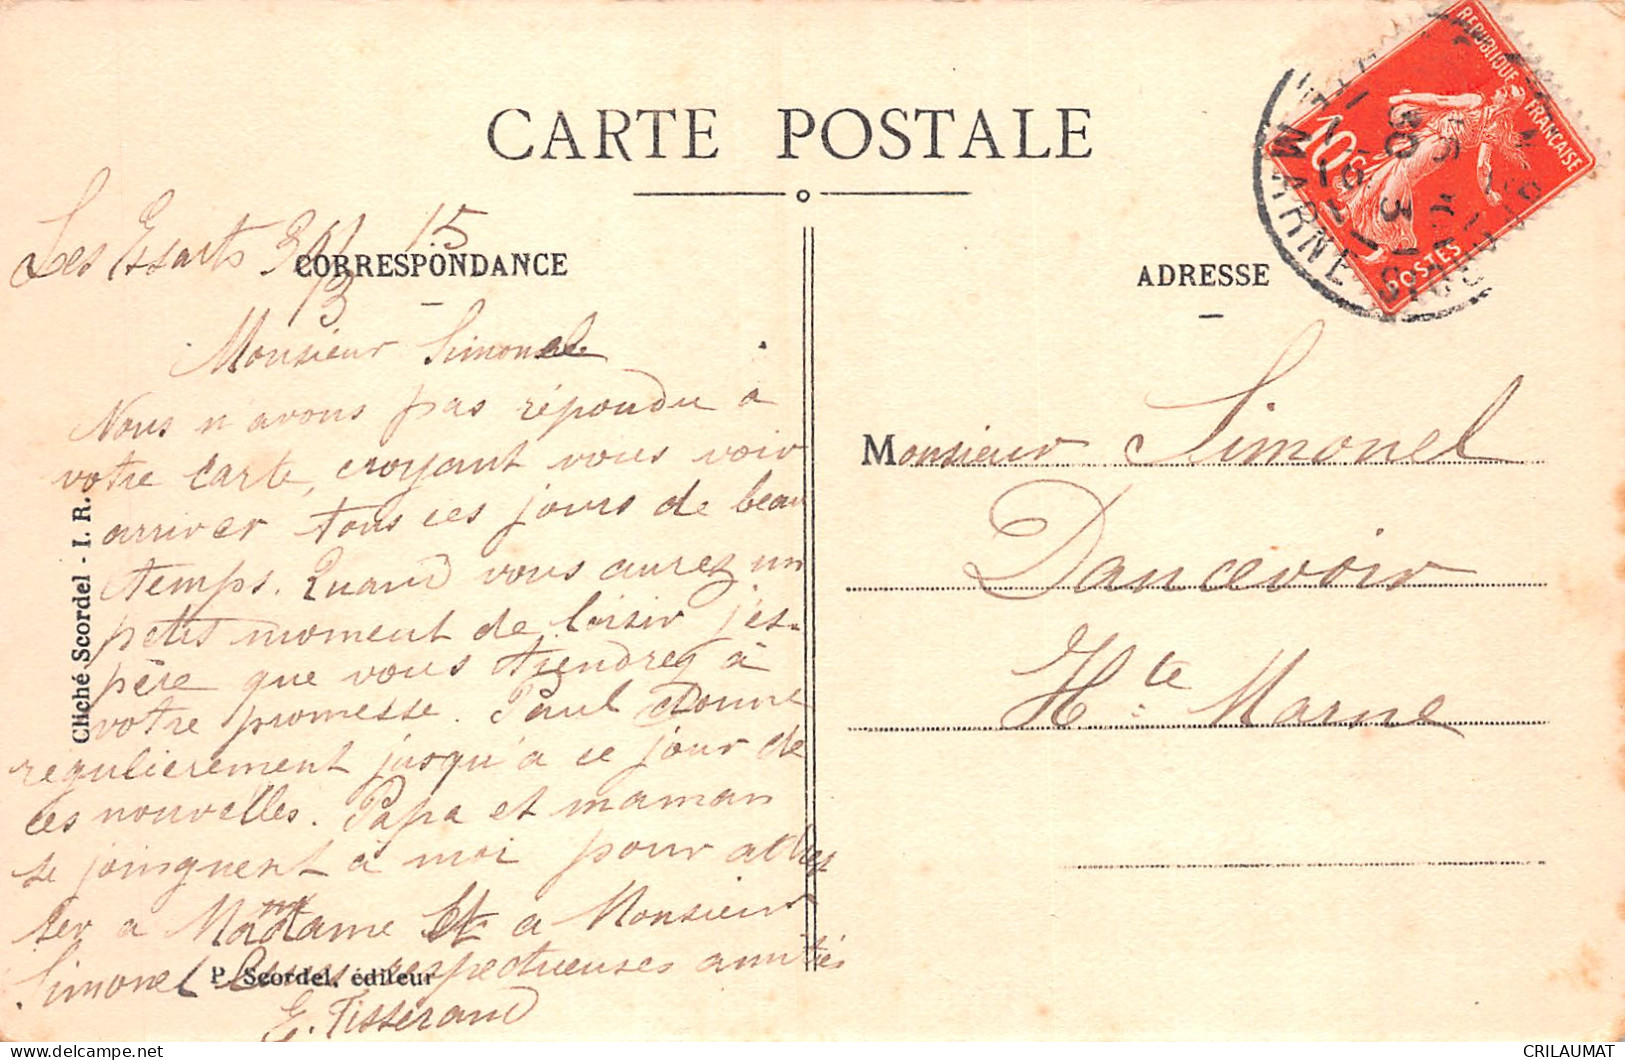 CARTE POSTALE
RÉPUBLIQUE FRANÇAISE
10c
POSTES
MARNE
30 3
Les Essarts 30 15
3
CORRESPONDANCE
ADRESSE
Monsieur Simonel
Nous n'avons pas répondu à
votre carte, croyant vous voir
arriver tous ces jours de beau
temps. Quand vous aurez un
petit moment de loisir j'es-
père que vous tiendrez à
votre promesse. Paul donne
regulièrement jusqu'à ce jour de
ces nouvelles. Papa et maman
se joingnent à moi pour adres
ser a Madame et a Monsieur
Simonel respectueuses amitiés
E. Tisserand
Monsieur Simonel
Dancevoir
Hte Marne
Cliché Scordel - I. R.
P. Scordel, éditeur
CRILAUMAT